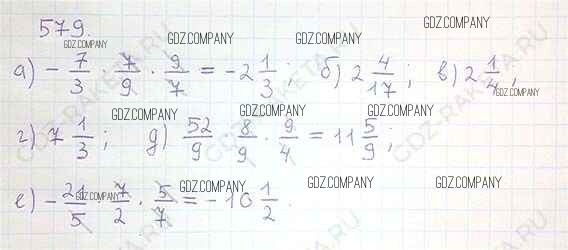 579.
GDZ.COMPANY
GDZ.COMPANY GDZ.COMPANY GDZ.COMPANY
а) - 7/3 · 7/9 · 9/7 = -2 1/3; б) 2 4/17; в) 2 1/4;
GDZ.COMPANY
GDZ.COMPANY GDZ.COMPANY GDZ.COMPANY
г) 7 1/3; д) 52/9 · 8/9 · 9/4 = 11 5/9;
GDZ.COMPANY GDZ.COMPANY GDZ.COMPANY GDZ.COMPANY
е) - 21/5 · 7/2 · 5/7 = -10 1/2.
GDZ-RAKETA.RU